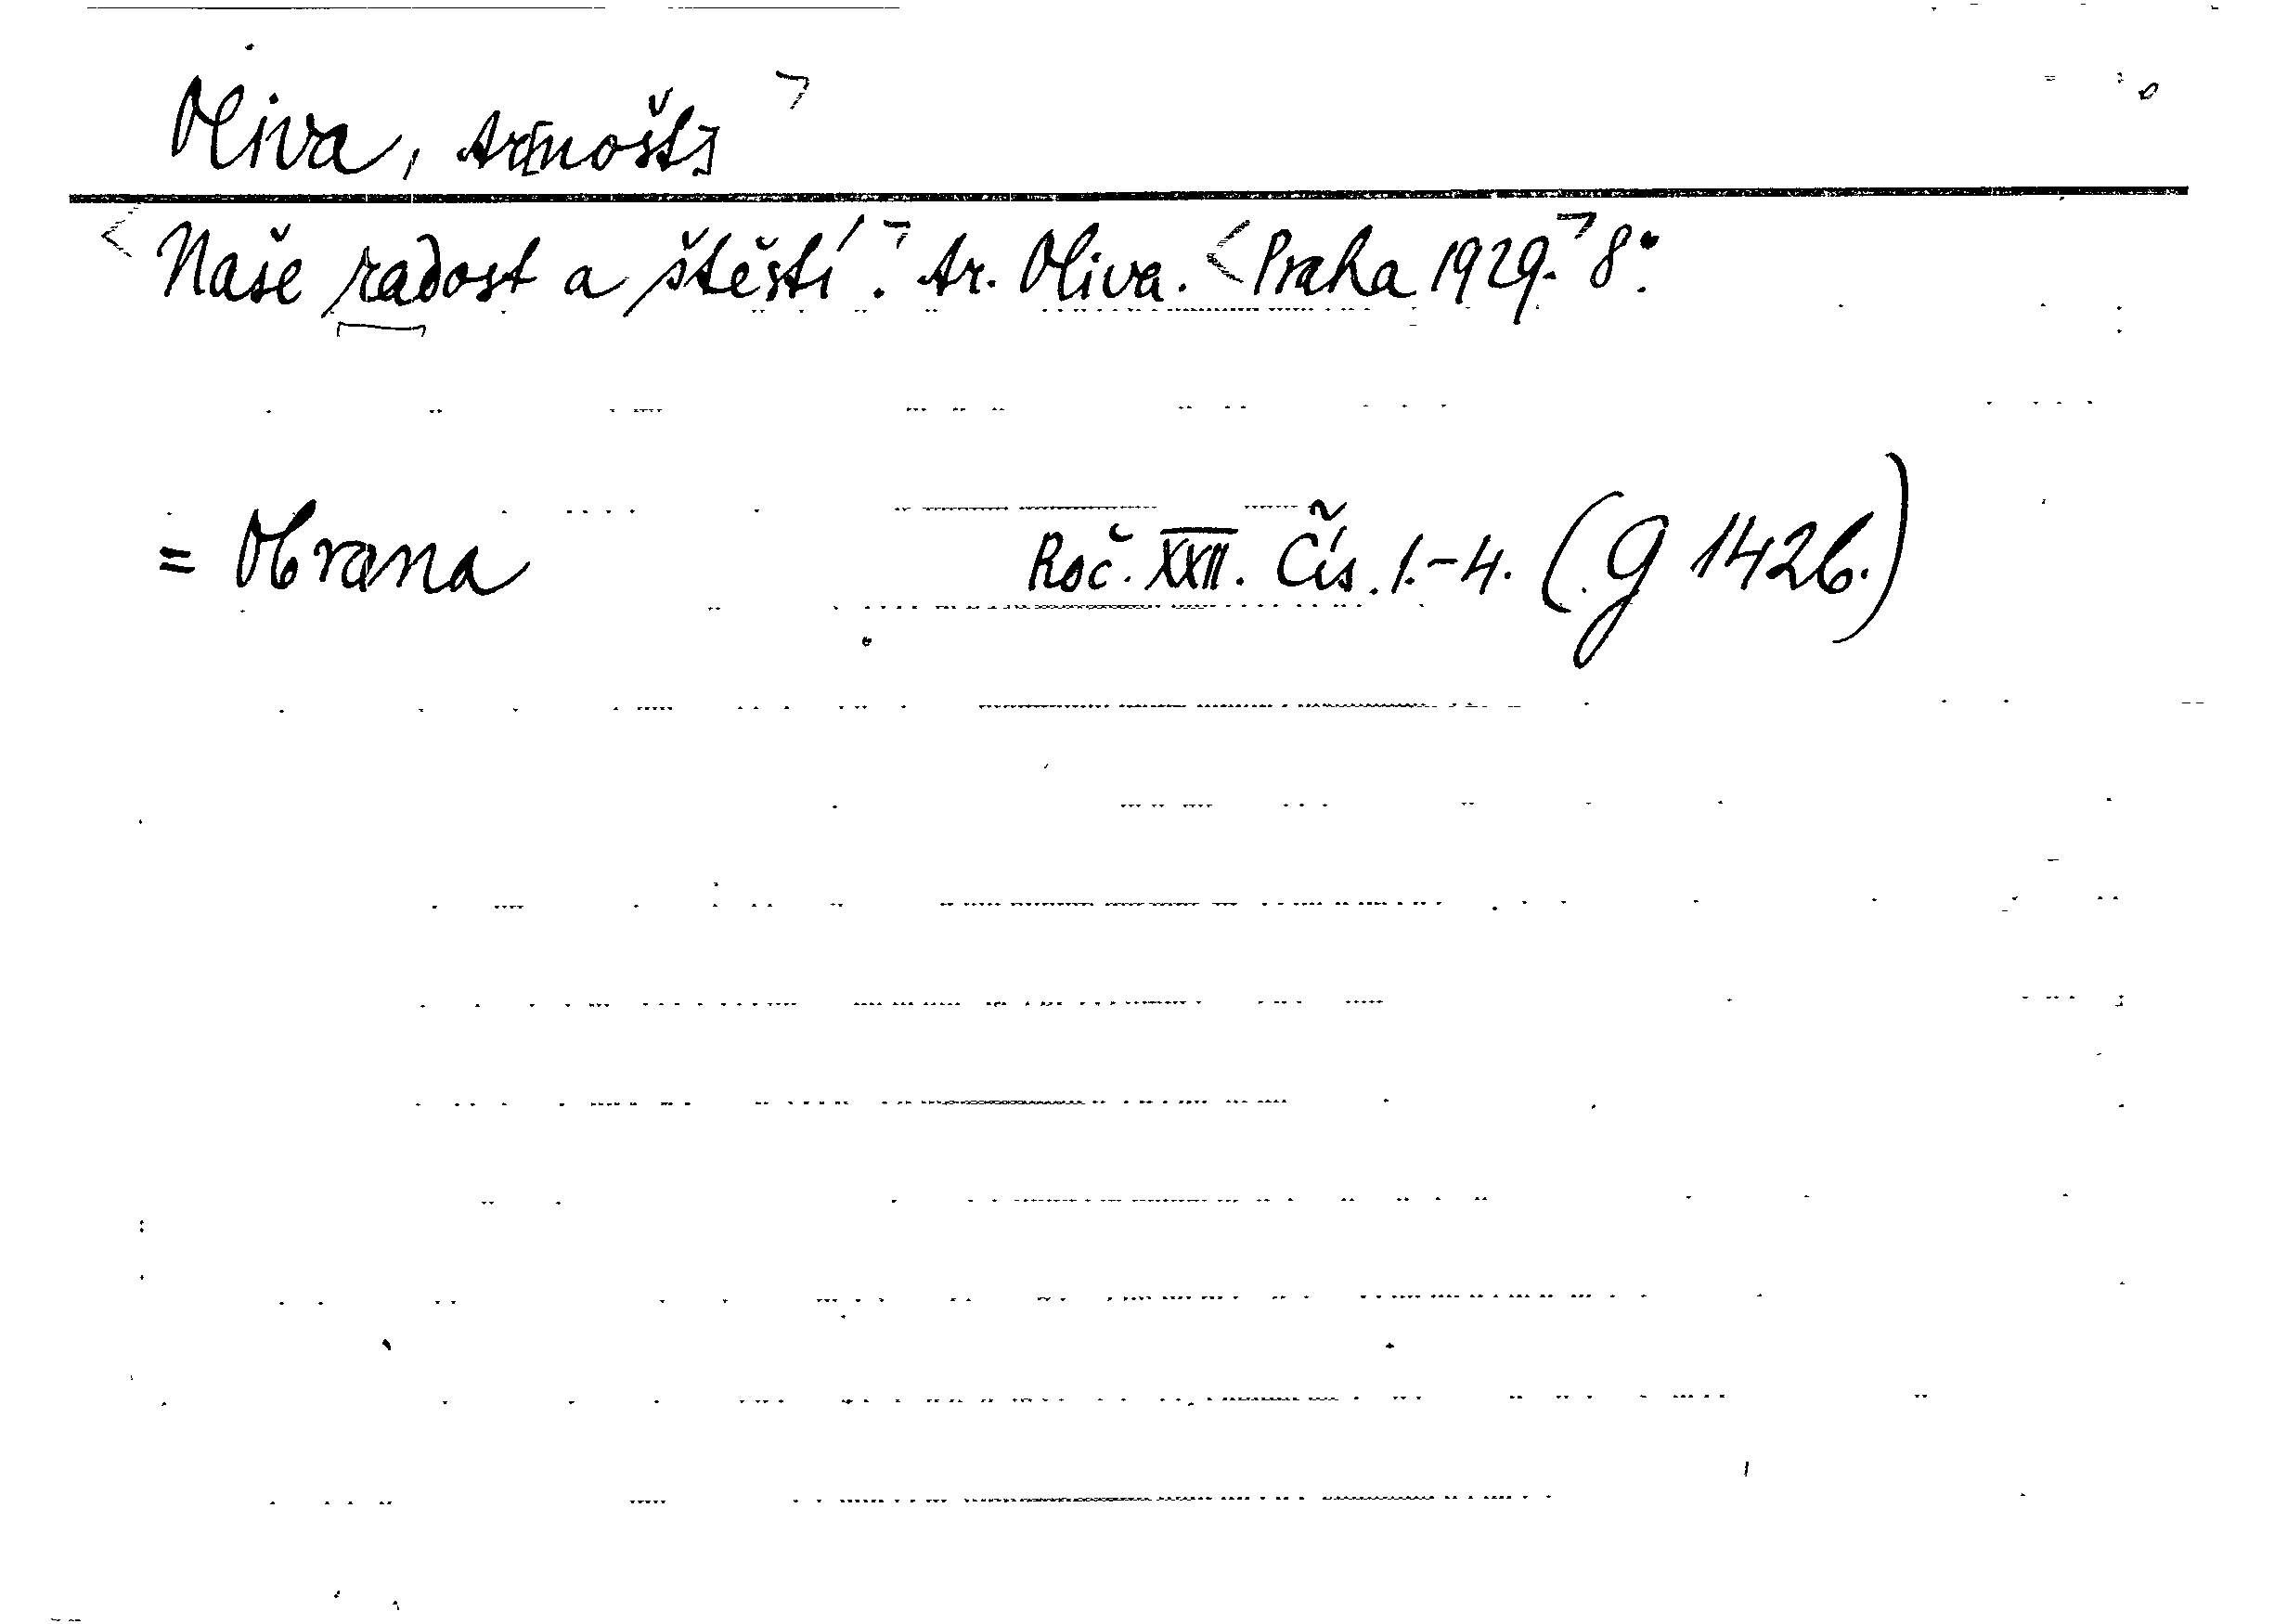 Oliva, Ar[nošt]
Naše radost a štěstí. Ar. Oliva. Praha 1929. 8°.
= Obrana Roč. XXII. Čís. 1.-4. (G 1426.)